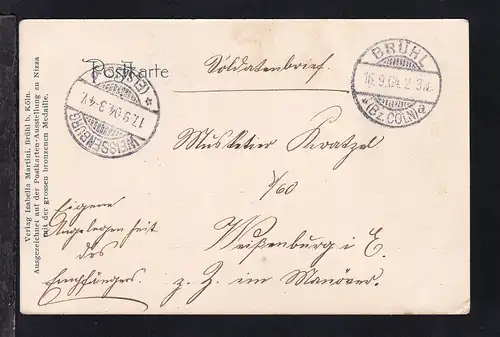 Postkarte
Soldatenbrief.
BRÜHL
16.9.04.2-3N.
* (Bz. CÖLN) a
WEISSENBURG
17.9.04.3-4V.
* (ELSASS) *
Musketier Kratzel
/60
Weißenburg i E.
z. Z. im Manöver.
Eigene
Angelegenheit
des
Empfängers.
Verlag Isabella Martini, Brühl b. Köln.
Ausgezeichnet auf der Postkarten-Ausstellung zu Nizza
mit der grossen bronzenen Medaille.